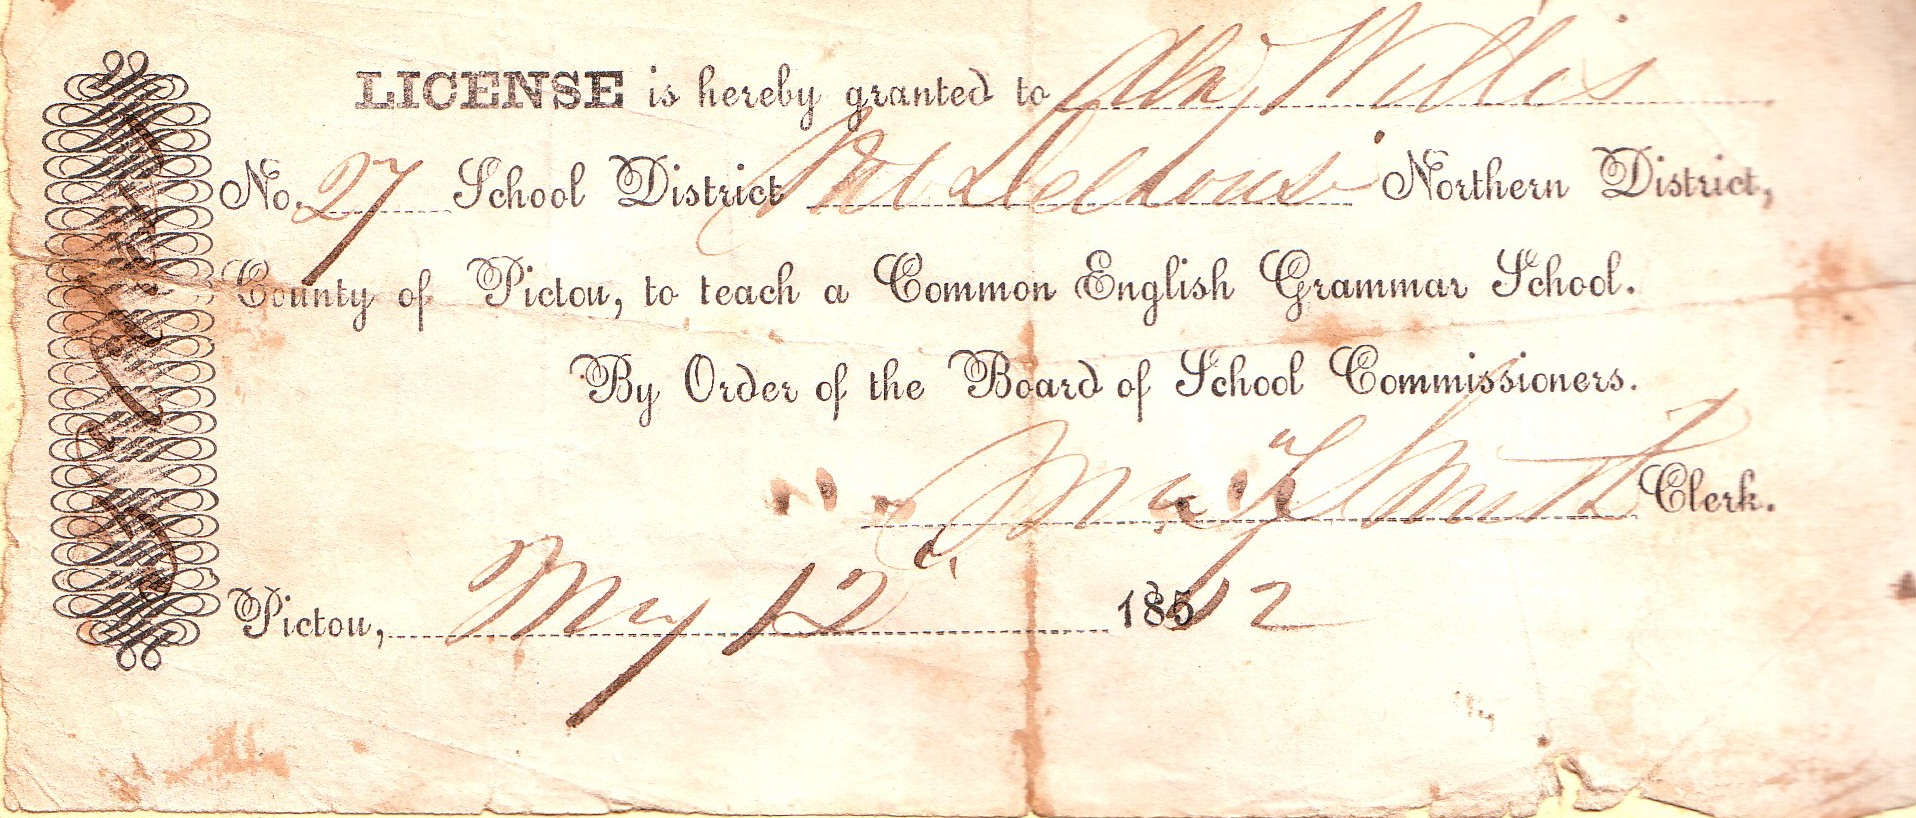 LICENSE is hereby granted to Willis
No. 27 School District Dalhousie Northern District,
County of Pictou, to teach a Common English Grammar School.
By Order of the Board of School Commissioners.
Smith Clerk.
Pictou, May 12 185 2